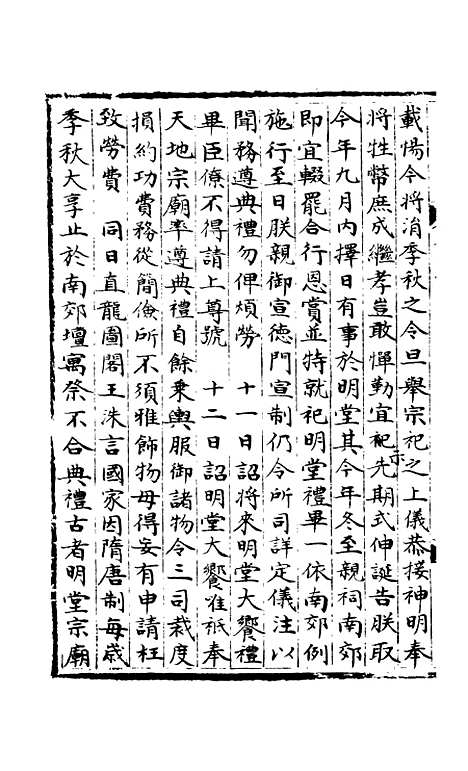 載惕今將消季秋之令旦舉宗祀之上儀恭接神明奉
將牲幣庶成繼孝豈敢憚勤宜祀示先期式伸誕告朕取
今年九月內擇日有事於明堂其今年冬至親祠南郊
即宜輟罷合行恩賞並特就祀明堂禮畢一依南郊例
施行至日朕親御宣德門宣制仍令所司詳定儀注以
聞務遵典禮勿俾煩勞　十一日詔將來明堂大饗禮
畢臣僚不得請上尊號　十二日詔明堂大饗准祇奉
天地宗廟率遵典禮自餘乘輿服御諸物令三司裁度
損約功費務從簡儉所不須雅飾物毋得妄有申請枉
致勞費　同日直龍圖閣王洙言國家因隋唐制每歲
季秋大享止於南郊壇寓祭不合典禮古者明堂宗廟